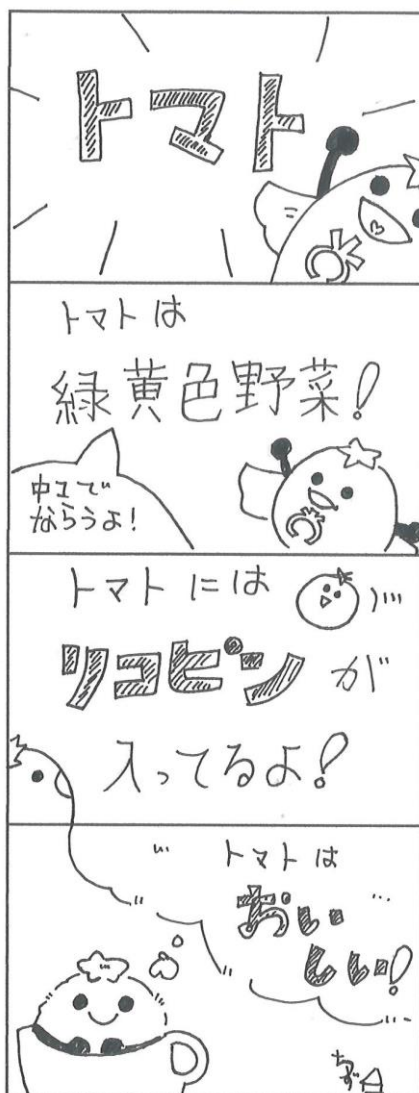 トマト
トマトは
緑黄色野菜!
中1で
ならうよ!
トマトには
リコピンが
入ってるよ!
トマトは
おい
しい!
ちず